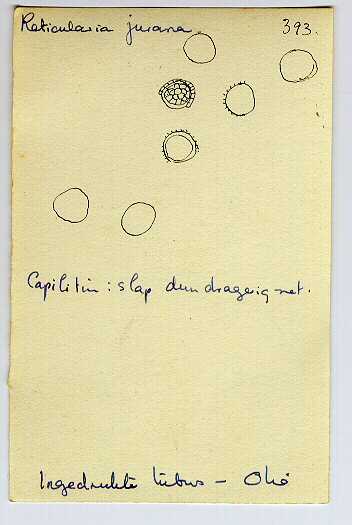 Reticularia jurana 393.
Capilitium: slap dun dragerig net.
Ingedrukte tubus - Olie